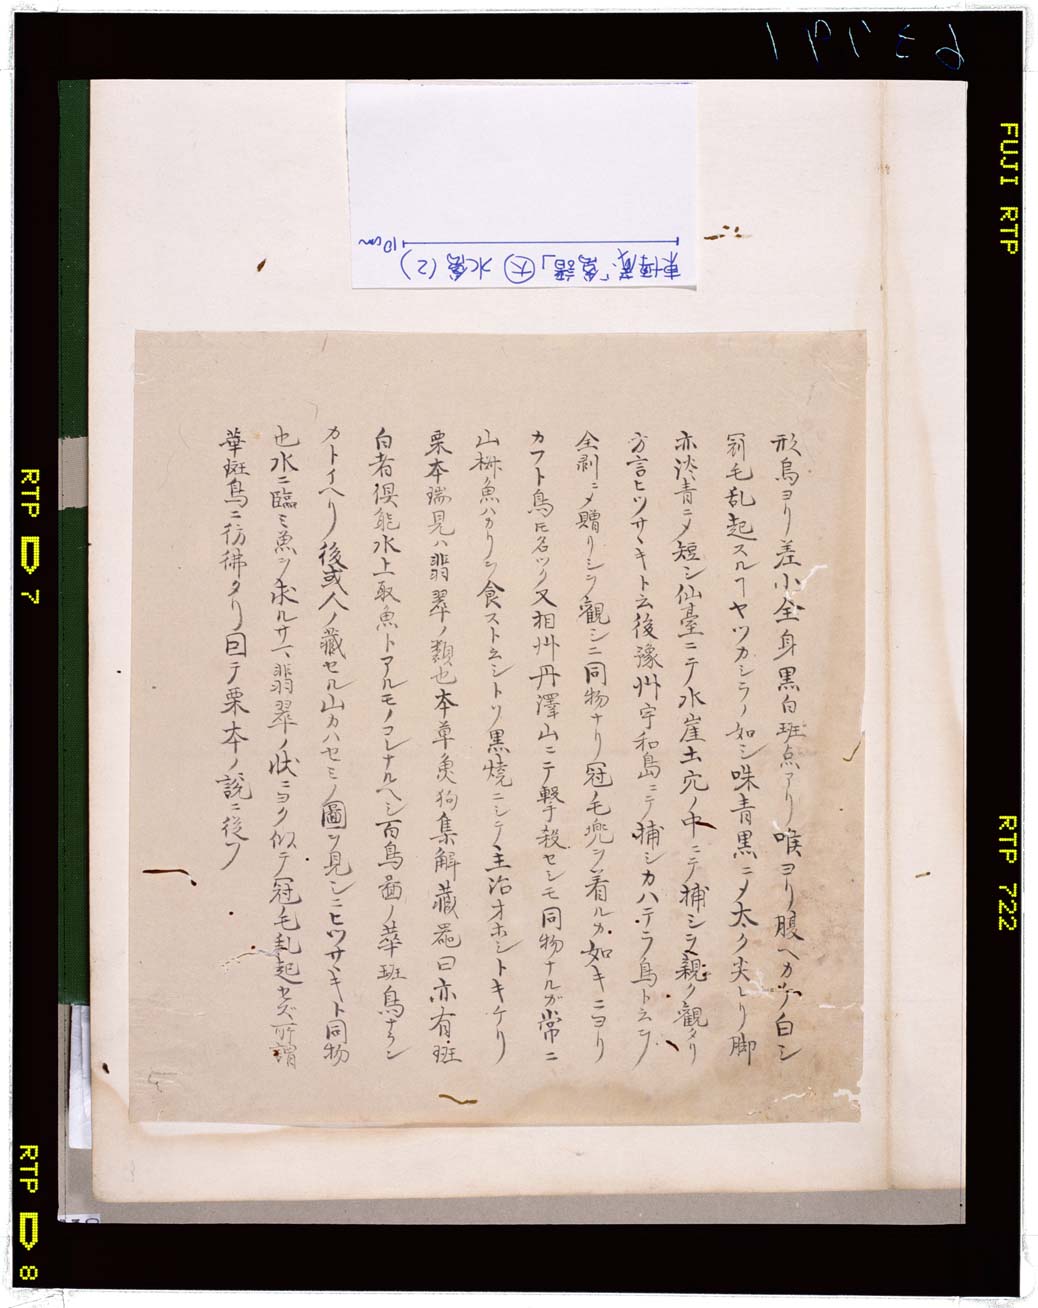 63791
FUJI RTP
RTP 722
RTP 7
RTP 8
東博蔵「鳥譜」大 水禽(2)
10cm
形烏ヨリ差小全身黒白斑点アリ喉ヨリ腹ヘカケ白シ
冠毛乱起スルヿヤツカシラノ如シ咮青黒ニメ太ク尖レリ脚
亦淡青ニメ短シ仙臺ニテ水崖土穴ノ中ニテ捕シヲ親ク観タリ
方言ヒツサヽキト云後豫州宇和島ニテ捕シカハテラ鳥ト云フ
全剥ニメ贈リシヲ観シニ同物ナリ冠毛兜ヲ着ルカ如キニヨリ
カフト鳥氏名ツク又相州丹澤山ニテ撃殺セシモ同物ナルガ常ニ
山椒魚ハカリヲ食スト云シトソ黒焼ニシテ主治オホシトキケリ
栗本瑞見ハ翡翠ノ類也本草魚狗集解蔵器曰亦有斑
白者俱能水上取魚トアルモノコレナルヘシ百鳥圖ノ華斑鳥ナラン
カトイヘリ後或人ノ藏セル山カハセミノ圖ヲ見シニヒツサヽキト同物
也水ニ臨ミ魚ヲ求ルサマ翡翠ノ状ニヨク似テ冠毛乱起セズ所謂
華斑鳥ニ彷彿タリ因テ栗本ノ説ニ従フ